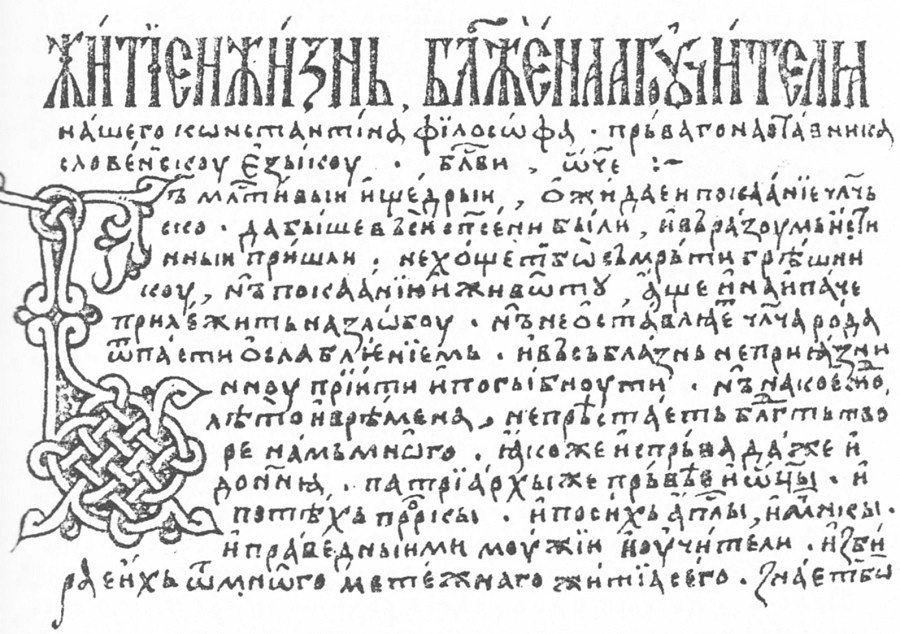 жи́тїе и жи́знь, бл҃же́нааго ᲂу҆чи́телꙗ
на́шего кѡнстанті́на фїлосѡ́фа · пръ́ваго наста́вника
слове́нскоу є҆зы́коу · бл҃ви, ѡ҆́ч҃е :~
Б҃ъ мл҃ти́выи и҆ ще́дрыи, ѡ҆жи́даеи покаа́нїе чл҃чь
ско · да бы́ше въсѝ сп҃се́ни бы́ли, и҆ въ ра́зоумь и҆́сти
нныи пришлѝ · не хо́щет бо съмръ́ти грѣ́шни
коу, нъ̀ покаа́нїю и҆ живѡтꙋ̀, а҆́ще и҆ наи́паче
прилѣжи́ть на зло́боу · нъ̀ не ѡ҆ставлꙗ́еть чл҃ча ро́да
ѿпа́сти ѡ҆слабле́нїемь · и҆ въ събла́знь непрїꙗ́зни
нноу прїитѝ и҆ погы́бноути · нъ̀ на коеж҆до
лѣ́то и҆ врѣ́мена, не прѣ́стаеть бл҃гть тво
ре на́мь мнѡ́го · ꙗ҆́коже и҆спръ́ва да́же и҆
дон҃нꙗ · патрїа́рхы же пръ́вѣе и҆ ѡ҆ц҃ы · и҆
по тѣ́хъ прⷪ҇рокы · и҆ по си́хъ а҆пⷭ҇лы, и҆ мч҃никы ·
и҆ пра́ведныими моу́жїи и҆ ᲂу҆чи́тели · и҆збиⷬ
рае и҆́хъ ѿ мнѡ́го мете́жнаго житїа̀ сего̀ · зна́еть бѡ